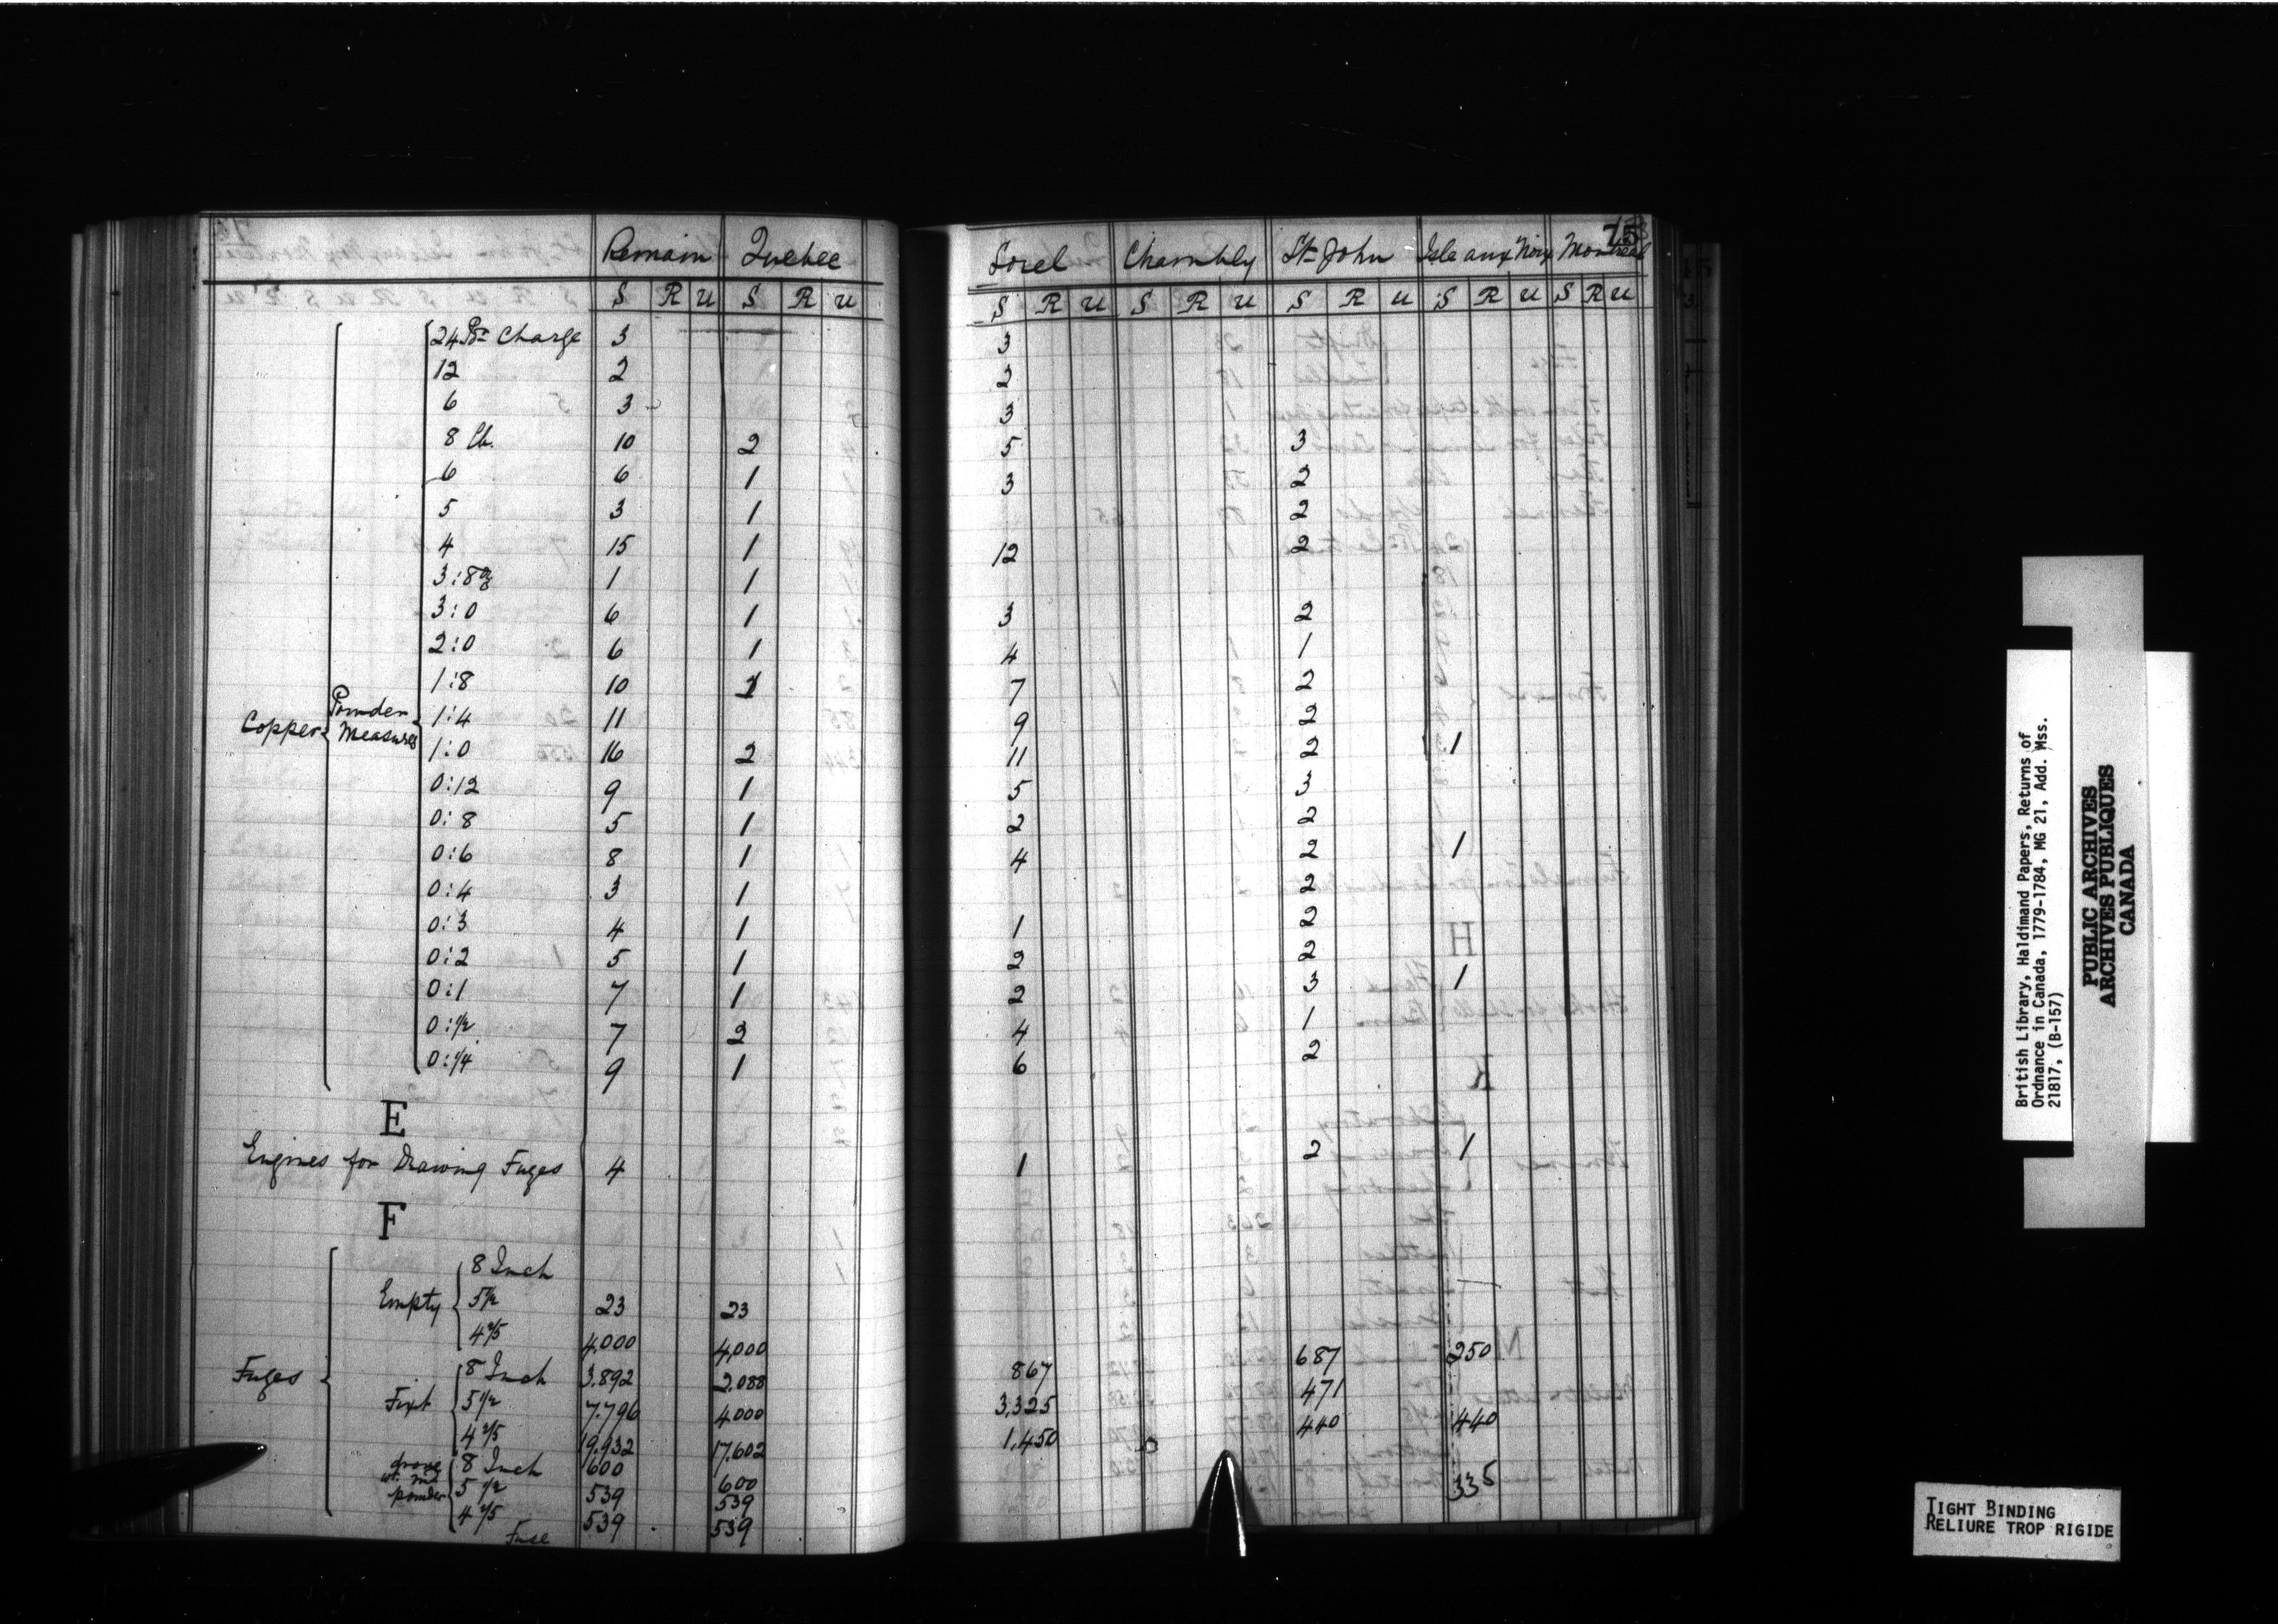 75
Remain Quebec Sorel Chambly St. John Isle aux Noix Montreal
S R U S R U S R U S R U S R U S R U S R U
24 Pr Charge 3 3
12 2 2
6 3 3
8 lb. 10 2 5 3
6 6 1 3 2
5 3 1 2
4 15 1 12 2
3:8 oz 1 1
3:0 6 1 3 2
2:0 6 1 4 1
1:8 10 1 7 2
Copper Powder Measures 1:4 11 9 2
1:0 16 2 11 2 1
0:12 9 1 5 3
0:8 5 1 2 2
0:6 8 1 4 2 1
0:4 3 1 2
0:3 4 1 1 2
0:2 5 1 2 2
0:1 7 1 2 3 1
0:1/2 7 2 4 1
0:1/4 9 1 6 2
E
Engines for Drawing Fuzes 4 1 2 1
F
8 Inch
Empty 5 1/2 23 23
4 2/5 4,000 4,000
Fuzes
8 Inch 3,892 2,088 867 687 250
Fixt 5 1/2 7,796 4000 3,325 471
4 2/5 19,932 17,602 1,450 440 440
drove wt. md powder
8 Inch 600 600
5 1/2 539 539 335
4 2/5 539 539
Fuse
British Library, Haldimand Papers, Returns of
Ordnance in Canada, 1779-1784, MG 21, Add. Mss.
21817, (B-157)
PUBLIC ARCHIVES
ARCHIVES PUBLIQUES
CANADA
TIGHT BINDING
RELIURE TROP RIGIDE